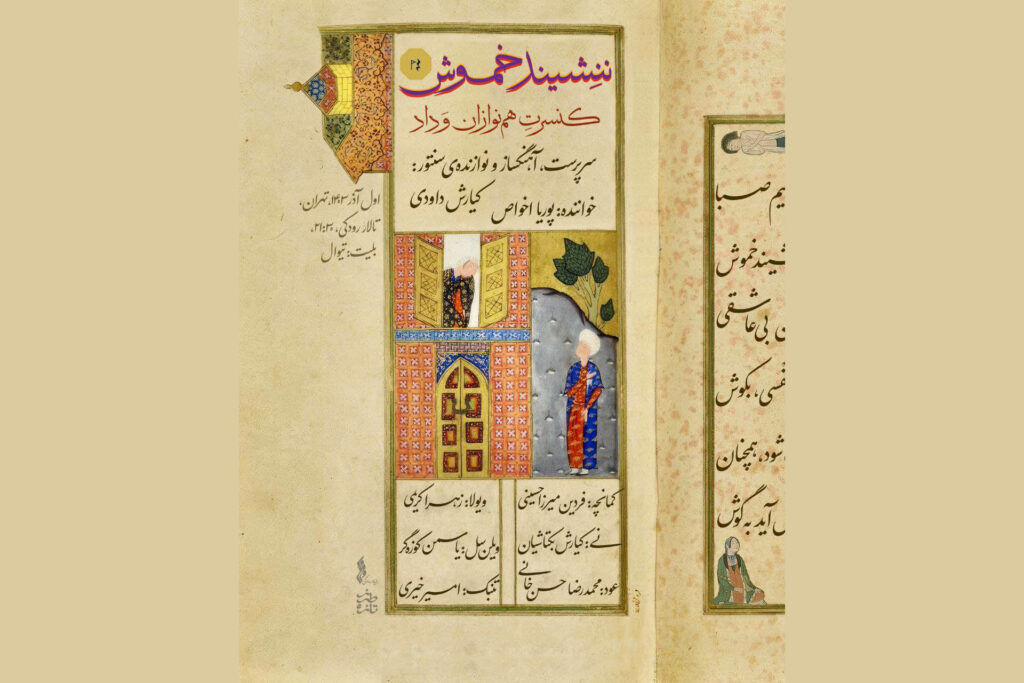 ننِشیند خموش
کنسرتِ هم‌نوازان وَداد
سرپرست، آهنگساز و نوازنده‌ی سنتور:
کیارش داودی
خواننده: پوریا اخواص
اول آذر ۱۴۰۳، تهران،
تالار رودکی، ۲۱:۳۰،
بلیت: تیوال
کمانچه: فردین میرزاحسینی
نے: کیارش بکتاشیان
عود: محمدرضا حسن خانے
ویولا: زهرا کرمی
ویلن سل: یاسمن کوزه‌گر
تنبک: امیر خیری
یم صبا
شیند خموش
ن بی‌عاشقی
نفسی، بکوش
شود، همچنان
آید به گوش